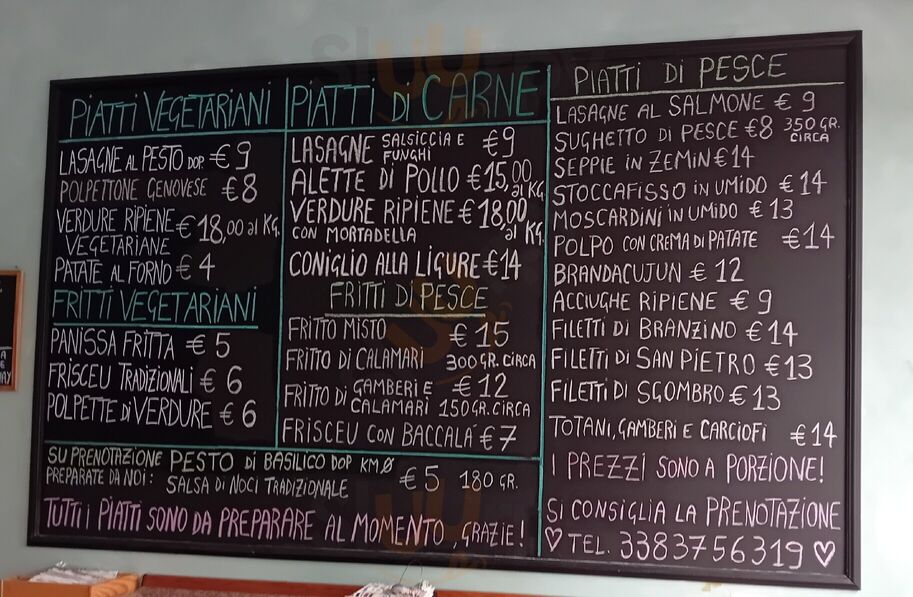 PIATTI VEGETARIANI
LASAGNE AL PESTO DOP €9
POLPETTONE GENOVESE €8
VERDURE RIPIENE €18,00 al KG.
VEGETARIANE
PATATE AL FORNO €4
FRITTI VEGETARIANI
PANISSA FRITTA €5
FRISCEU TRADIZIONALI €6
POLPETTE di VERDURE €6
PIATTI DI CARNE
LASAGNE SALSICCIA E FUNGHI €9
ALETTE DI POLLO €15,00 al KG
VERDURE RIPIENE €18,00 al KG.
CON MORTADELLA
CONIGLIO ALLA LIGURE €14
FRITTI DI PESCE
FRITTO MISTO €15
FRITTO DI CALAMARI 300 GR. CIRCA
FRITTO DI GAMBERI E €12
CALAMARI 150 GR. CIRCA
FRISCEU CON BACCALA' €7
SU PRENOTAZIONE PESTO DI BASILICO DOP KM0
PREPARATE DA NOI: SALSA DI NOCI TRADIZIONALE €5 180 GR.
TUTTI i PIATTI SONO DA PREPARARE AL MOMENTO, GRAZIE!
PIATTI DI PESCE
LASAGNE AL SALMONE €9
SUGHETTO DI PESCE €8 350 GR. CIRCA
SEPPIE IN ZEMIN €14
STOCCAFISSO IN UMIDO €14
MOSCARDINI IN UMIDO €13
POLPO CON CREMA DI PATATE €14
BRANDACUJUN €12
ACCIUGHE RIPIENE €9
FILETTI DI BRANZINO €14
FILETTI DI SAN PIETRO €13
FILETTI DI SGOMBRO €13
TOTANI, GAMBERI E CARCIOFI €14
I PREZZI SONO A PORZIONE!
SI CONSIGLIA LA PRENOTAZIONE
♡ TEL. 3383756319 ♡